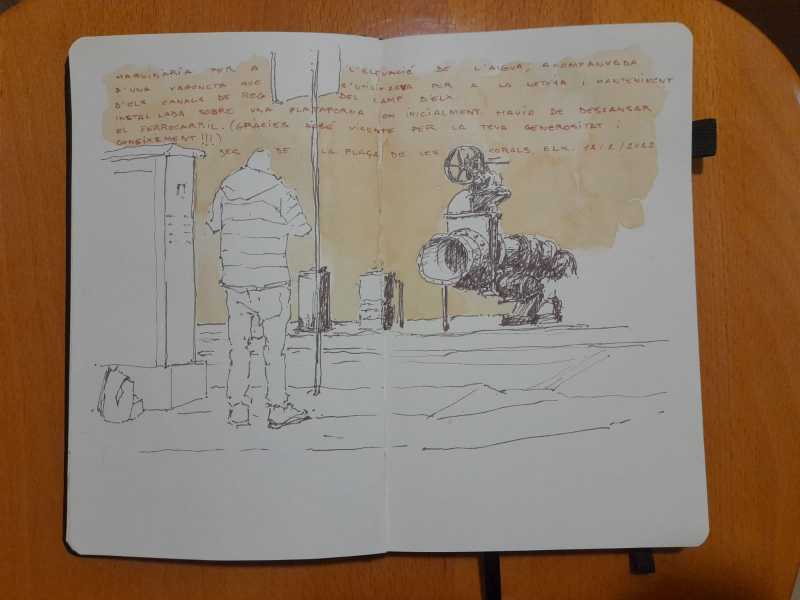 MAQUINÀRIA PER A L'ELEVACIÓ DE L'AIGUA, ACOMPANYADA
D'UNA VAGONETA QUE S'UTILITZAVA PER A LA NETEJA I MANTENIMENT
D'ELS CANALS DE REG DEL CAMP D'ELX.
INSTAL·LADA SOBRE UNA PLATAFORMA ON INICIALMENT HAVIE DE DESCANSAR
EL FERROCARRIL. (GRÀCIES JOSÉ VICENTE PER LA TEVA GENEROSITAT I
CONEIXEMENT!!!)
DES DE LA PLAÇA DE LES CORALS. ELX.